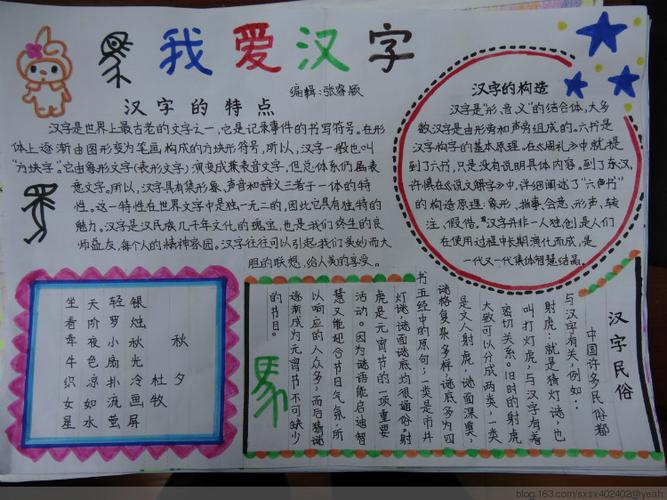 我爱汉字
编辑:张睿
汉字的特点
汉字是世界上最古老的文字之一,它是记录事件的书写符号。在形
体上逐渐由图形变为笔画构成的方块形符号。所以,汉字一般也叫
“方块字”。它由象形文字(表形文字)演变成兼表音文字,但总体系仍属表
意文字。所以,汉字具有集形象、声音和辞义三者于一体的特
性。这一特性在世界文字中是独一无二的,因此它具有独特的
魅力。汉字是汉民族几千年文化的瑰宝,也是我们终生的良
师益友,每个人的精神家园。汉字往往可以引起我们美妙而大
胆的联想,给人美的享受。
汉字的构造
汉字是“形、音、义”的结合体,大多
数汉字是由形旁和声旁组成的。六书是
汉字构字的基本原理,在《周礼》中就提
到了六书,只是没有说明具体内容。到了东汉,
许慎在《说文解字》中,详细阐述了“六书”
的构造原理:象形、指事、会意、形声、转
注、假借。汉字并非一人独创,是人们
在使用过程中长期演化而成,是
一代又一代集体智慧结晶。
秋夕
杜牧
银烛秋光冷画屏
轻罗小扇扑流萤
天阶夜色凉如水
坐看牵牛织女星
汉字民俗
中国许多民俗都
与汉字有关,例如:
射虎,就是猜灯谜,也
叫打灯虎,与汉字有着
密切关系。旧时的射虎
大致可以分成两类,一类
是文人射虎,谜面深奥,
谜格复杂多样,谜底多为四
书五经中的原句;一类是市井
灯谜,谜面谜底均很通俗。射
虎是元宵节的一项重要
活动。因为谜语能启迪智
慧又能迎合节日气氛,所
以响应的人众多,而后猜谜
逐渐成为元宵节不可缺少
的节目。
blog.163.com/sxsx402402@yeah